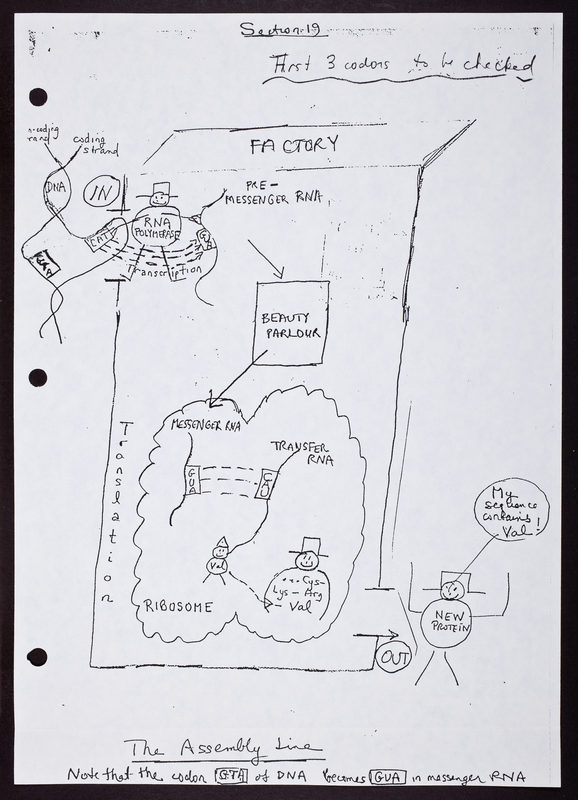 Section 19
First 3 codons to be checked
FACTORY
coding
strand
DNA
IN
PRE-
MESSENGER RNA
RNA
POLYMERASE
CAT
Transcription
BEAUTY
PARLOUR
MESSENGER RNA
TRANSFER
RNA
GUA
CAU
Translation
Val
... Cys-
Lys - Arg
- Val
RIBOSOME
My
sequence
contains
Val!
NEW
PROTEIN
OUT
The Assembly Line
Note that the codon GTA of DNA becomes GUA in messenger RNA